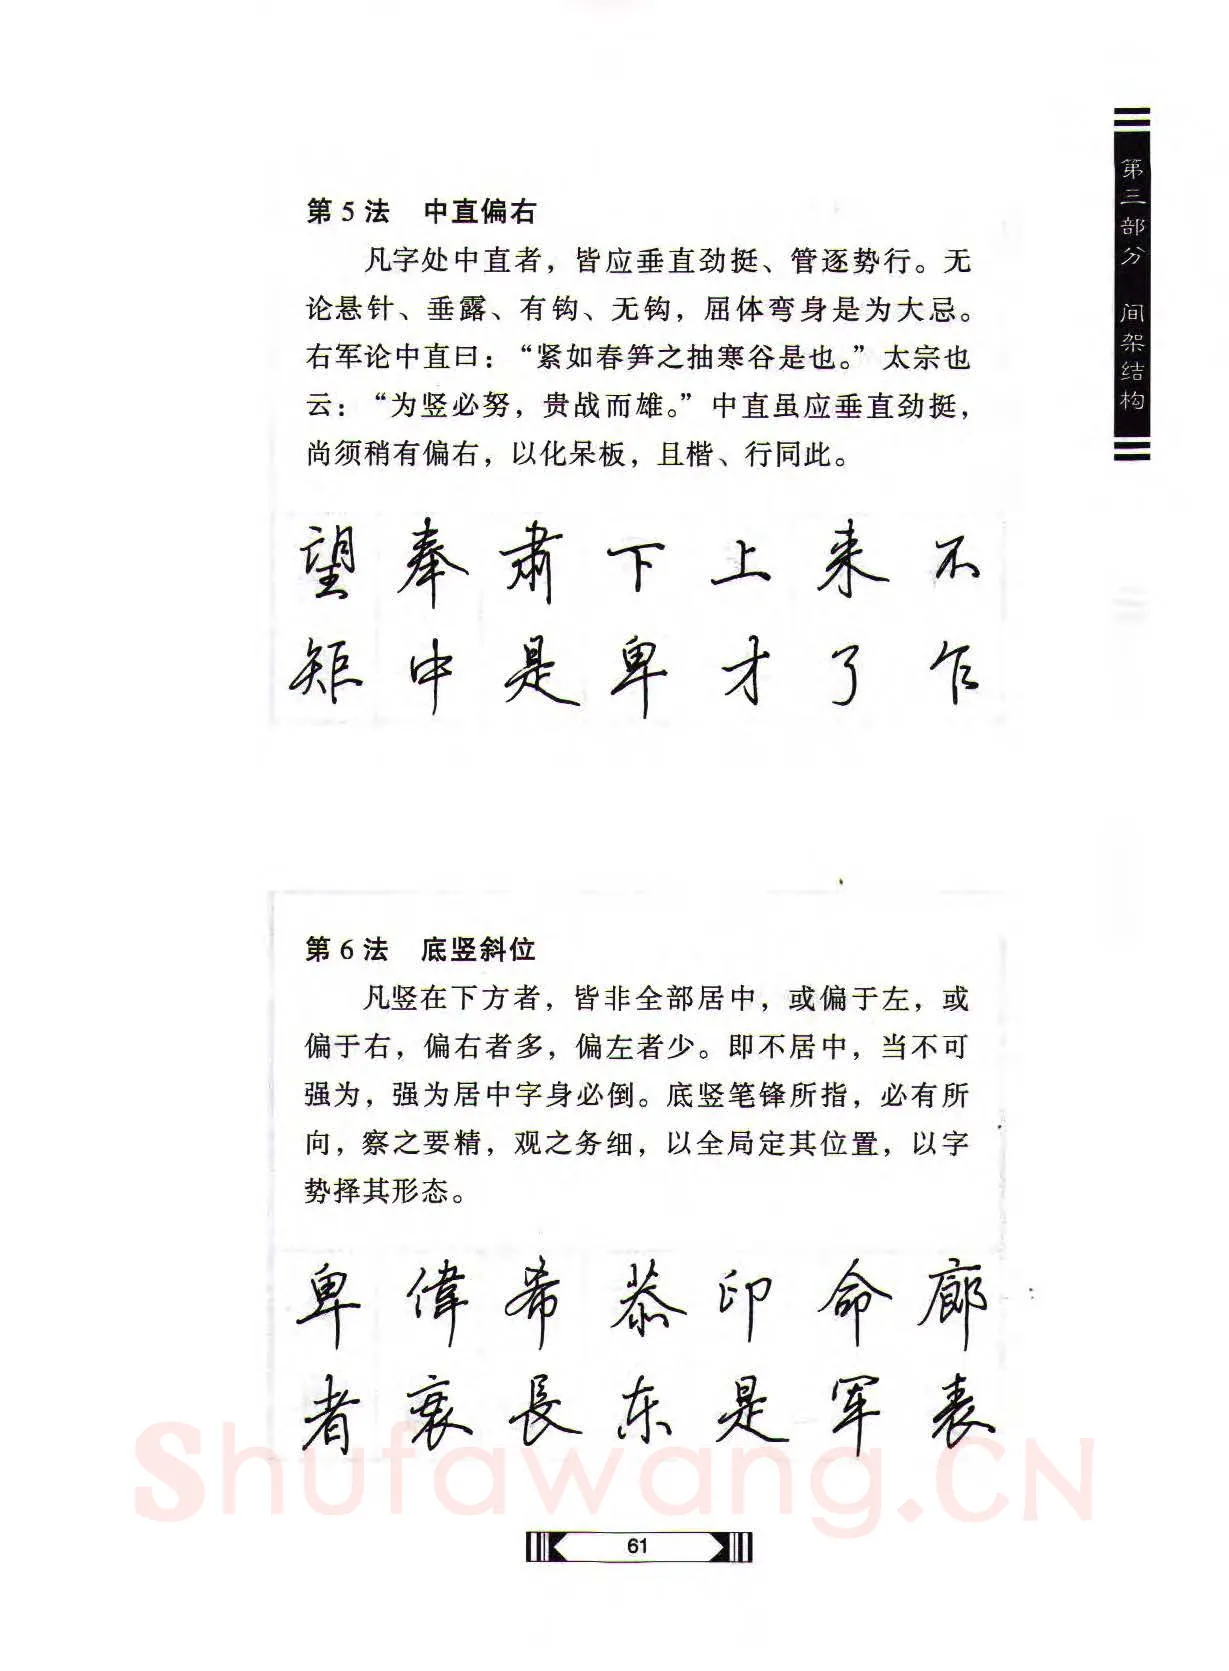 第三部分 间架结构
第 5 法 中直偏右
凡字处中直者，皆应垂直劲挺、管逐势行。无
论悬针、垂露、有钩、无钩，屈体弯身是为大忌。
右军论中直曰：“紧如春笋之抽寒谷是也。”太宗也
云：“为竖必努，贵战而雄。”中直虽应垂直劲挺，
尚须稍有偏右，以化呆板，且楷、行同此。
望 奉 肃 下 上 来 不
矩 中 是 卑 才 了 乍
第 6 法 底竖斜位
凡竖在下方者，皆非全部居中，或偏于左，或
偏于右，偏右者多，偏左者少。即不居中，当不可
强为，强为居中字身必倒。底竖笔锋所指，必有所
向，察之要精，观之务细，以全局定其位置，以字
势择其形态。
卑 偉 希 恭 印 命 廊
者 衰 長 东 是 军 表
Shufawang.CN
61